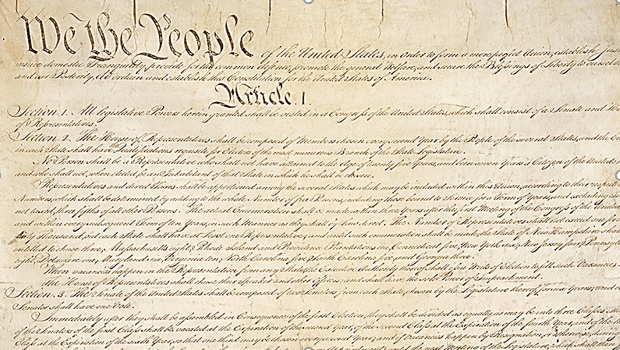 We the People of the United States, in order to form a more perfect Union, establish Just
insure domestic Tranquility, provide for the common defence, promote the general Welfare, and secure the Blessings of Liberty to ourselves
and our Posterity, do ordain and establish this Constitution for the United States of America.
Article. I.
Section. 1. All legislative Powers herein granted shall be vested in a Congress of the United States, which shall consist of a Senate and Ho
of Representatives.
Section. 2. The House of Representatives shall be composed of Members chosen every second Year by the People of the several States, and the El
in each State shall have Qualifications requisite for Electors of the most numerous Branch of the State Legislature.
No Person shall be a Representative who shall not have attained to the Age of twenty five Years, and been seven Years a Citizen of the United
and who shall not, when elected, be an Inhabitant of that State in which he shall be chosen.
Representatives and direct Taxes shall be apportioned among the several States which may be included within this Union, according to their respective
Numbers, which shall be determined by adding to the whole Number of free Persons, including those bound to Service for a Term of Years, and excluding
not taxed, three fifths of all other Persons. The actual Enumeration shall be made within three Years after the first Meeting of the Congress of the
and within every subsequent Term of ten Years, in such Manner as they shall by Law direct. The Number of Representatives shall not exceed one for
thirty Thousand, but each State shall have at Least one Representative; and until such enumeration shall be made, the State of New Hampshire shall
entitled to chuse three, Massachusetts eight, Rhode Island and Providence Plantations one, Connecticut five, New York six, New Jersey four, Pennsylv
eight, Delaware one, Maryland six, Virginia ten, North Carolina five, South Carolina five, and Georgia three.
When vacancies happen in the Representation from any State, the Executive Authority thereof shall issue Writs of Election to fill such Vacancies.
The House of Representatives shall chuse their Speaker and other Officers; and shall have the sole Power of Impeachment.
Section. 3. The Senate of the United States shall be composed of two Senators from each State, chosen by the Legislature thereof, for six Years; and
Senator shall have one Vote.
Immediately after they shall be assembled in Consequence of the first Election, they shall be divided as equally as may be into three Classes. The
of the Senators of the first Class shall be vacated at the Expiration of the second Year, of the second Class at the Expiration of the fourth Year, and of the
Class at the Expiration of the sixth Year, so that one third may be chosen every second Year; and if Vacancies happen by Resignation, or otherwise, during